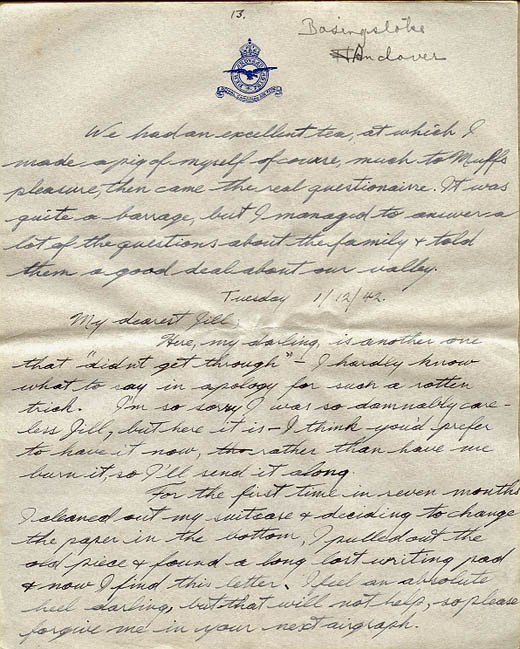 13.
Basingstoke
Andover
ROYAL CANADIAN AIR FORCE
We had an excellent tea, at which I
made a pig of myself of course, much to Muff's
pleasure, then came the real questionaire. It was
quite a barrage, but I managed to answer a
lot of the questions about the family & told
them a good deal about our valley.
Tuesday 1/12/42.
My dearest Jill
Here, my darling, is another one
that "didn't get through" – I hardly know
what to say in apology for such a rotten
trick. I'm so sorry I was so damnably care-
less Jill, but here it is – I think you'd prefer
to have it now, rather than have me
burn it, so I'll send it along.
For the first time in seven months
I cleaned out my suitcase & deciding to change
the paper in the bottom, I pulled out the
old piece & found a long lost writing pad
& now I find this letter. I feel an absolute
heel darling, but that will not help, so please
forgive me in your next airgraph.